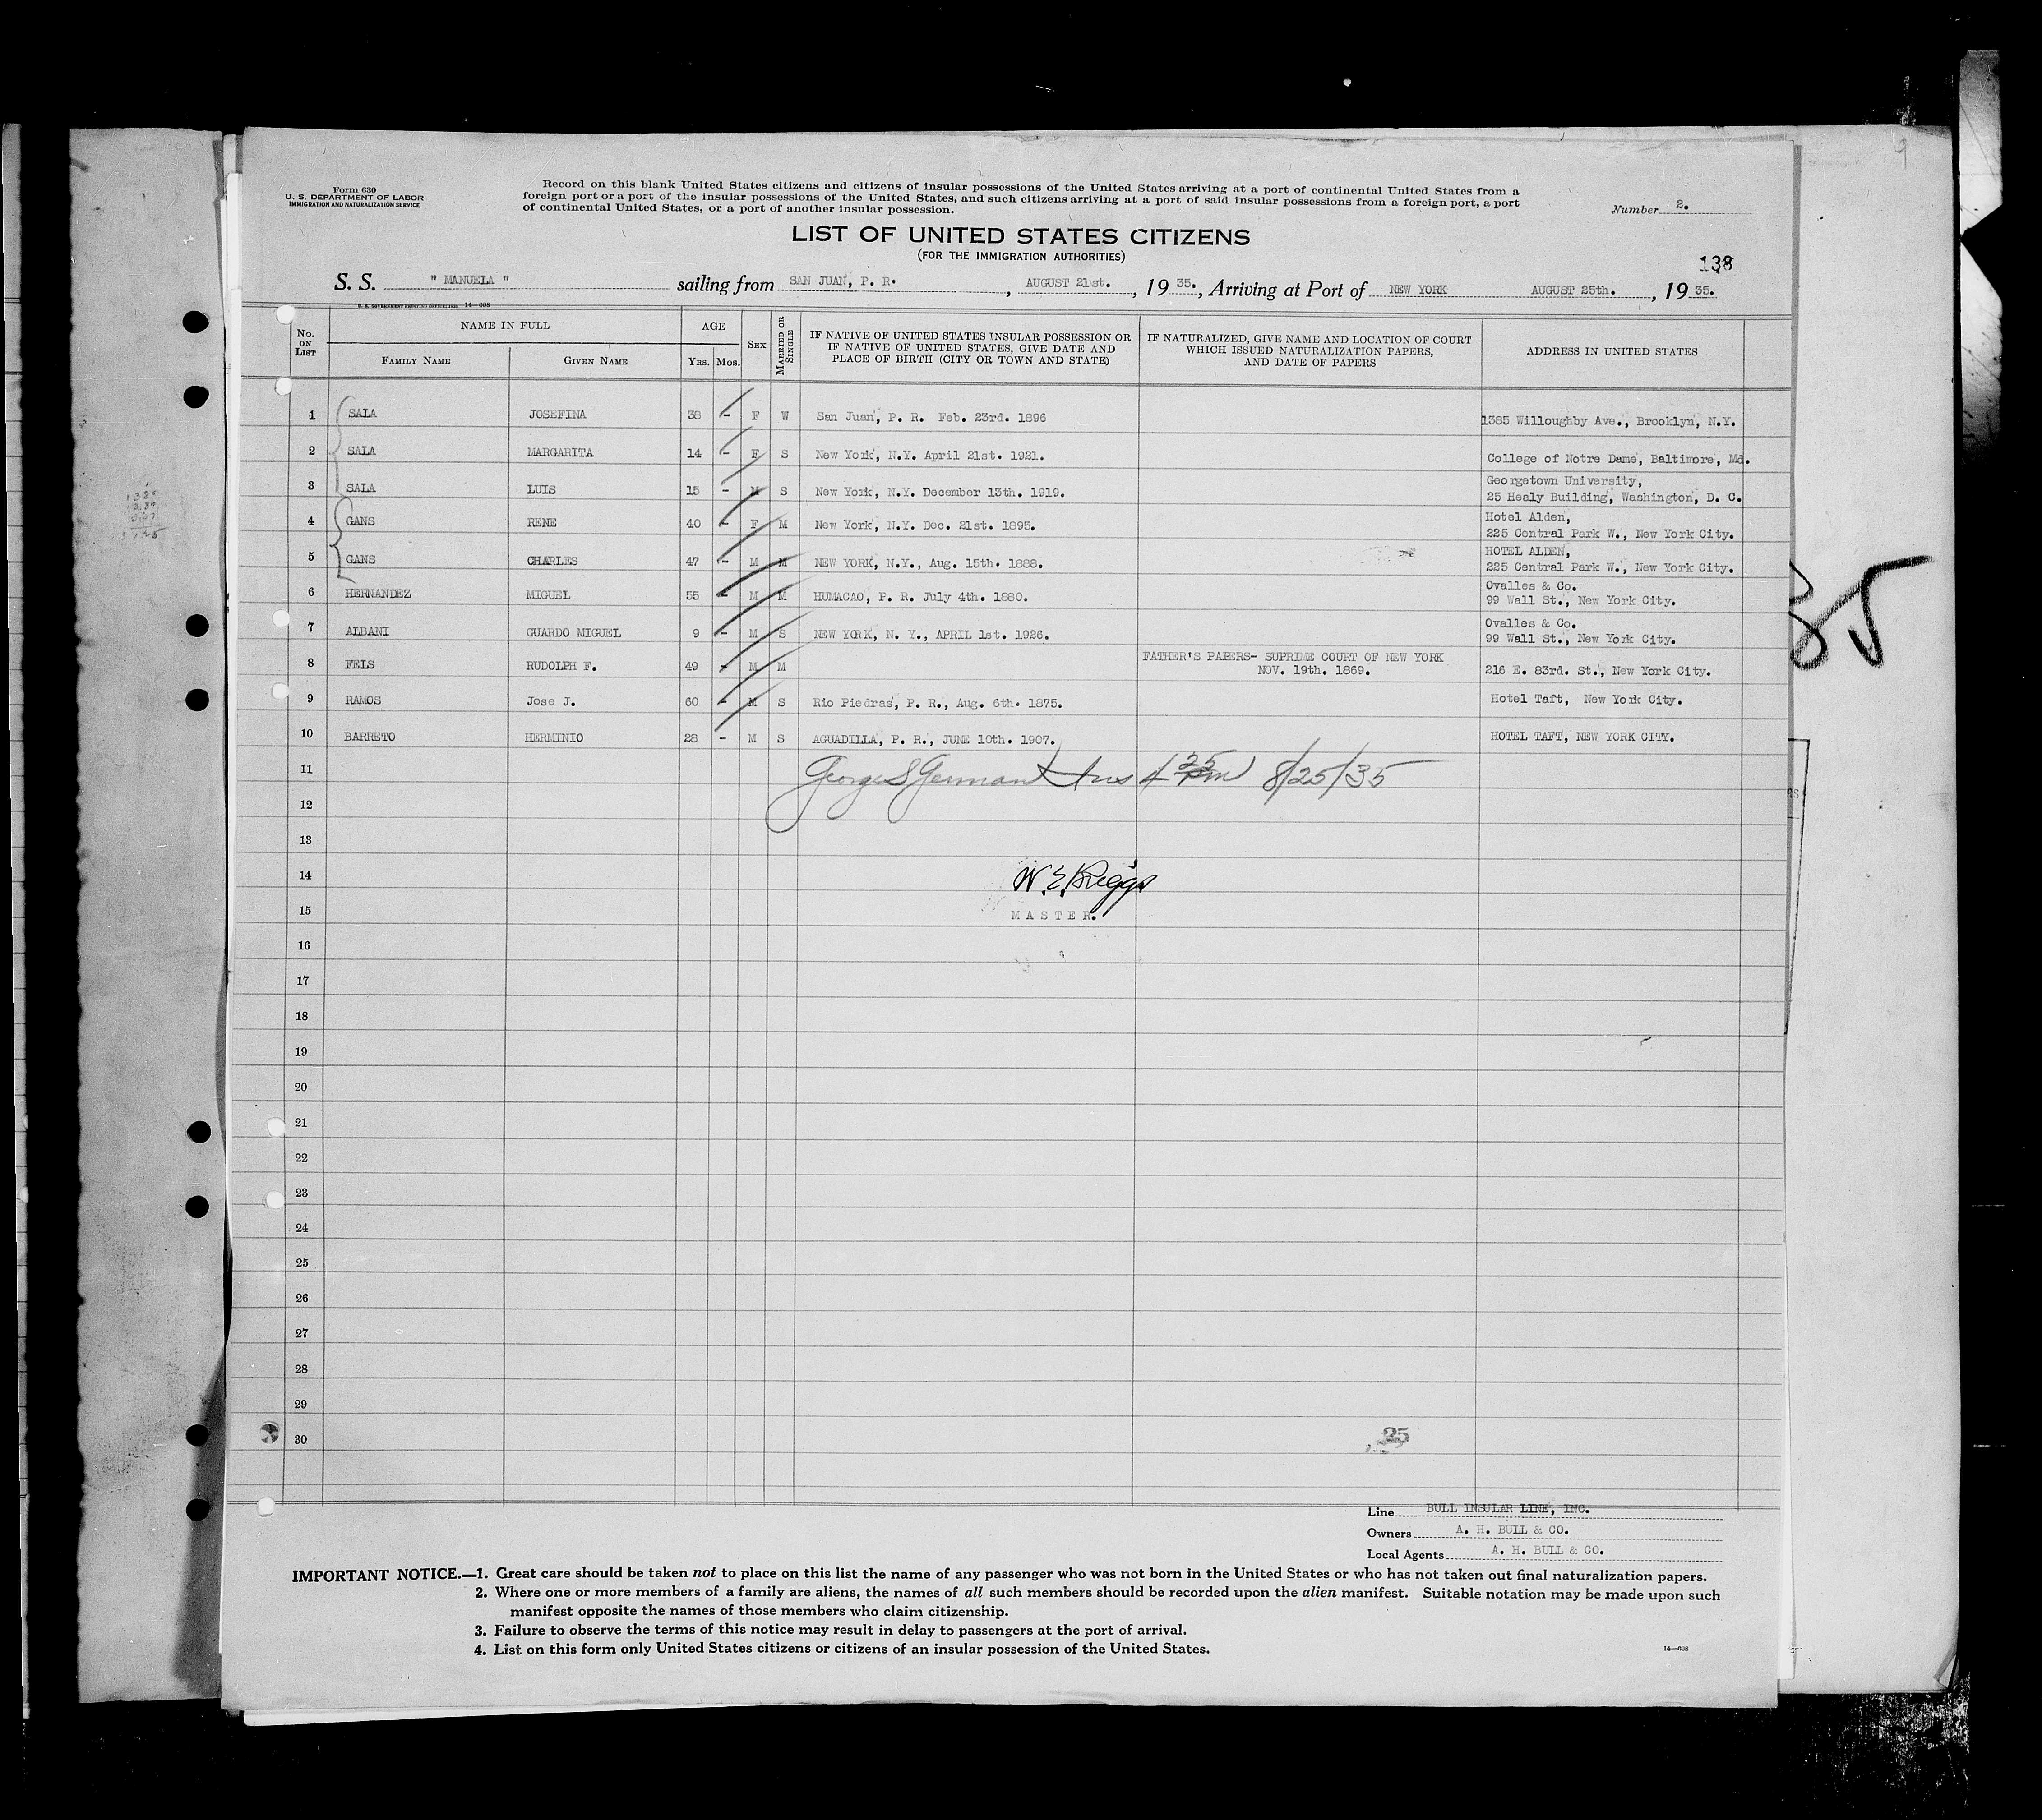 Form 630
U. S. DEPARTMENT OF LABOR
IMMIGRATION AND NATURALIZATION SERVICE
Record on this blank United States citizens and citizens of insular possessions of the United States arriving at a port of continental United States from a
foreign port or a port of the insular possessions of the United States, and such citizens arriving at a port of said insular possessions from a foreign port, a port
of continental United States, or a port of another insular possession.
Number 2.
LIST OF UNITED STATES CITIZENS
(FOR THE IMMIGRATION AUTHORITIES)
138
S. S. " MANUELA " sailing from SAN JUAN, P. R. , AUGUST 21st. , 19 35. , Arriving at Port of NEW YORK AUGUST 25th. , 19 35.
No. ON LIST NAME IN FULL FAMILY NAME GIVEN NAME AGE YRS. MOS. SEX MARRIED OR SINGLE IF NATIVE OF UNITED STATES INSULAR POSSESSION OR IF NATIVE OF UNITED STATES, GIVE DATE AND PLACE OF BIRTH (CITY OR TOWN AND STATE) IF NATURALIZED, GIVE NAME AND LOCATION OF COURT WHICH ISSUED NATURALIZATION PAPERS, AND DATE OF PAPERS ADDRESS IN UNITED STATES
1 SALA JOSEFINA 38 - F W San Juan, P. R. Feb. 23rd. 1896 1385 Willoughby Ave., Brooklyn, N.Y.
2 SALA MARGARITA 14 - F S New York, N.Y. April 21st. 1921. College of Notre Dame, Baltimore, Md.
3 SALA LUIS 15 - M S New York, N.Y. December 13th. 1919. Georgetown University,
25 Healy Building, Washington, D. C.
4 GANS RENE 40 - F M New York, N.Y. Dec. 21st. 1895. Hotel Alden,
225 Central Park W., New York City.
5 GANS CHARLES 47 - M M NEW YORK, N.Y., Aug. 15th. 1888. HOTEL ALDEN,
225 Central Park W., New York City.
6 HERNANDEZ MIGUEL 55 - M M HUMACAO, P. R. July 4th. 1880. Ovalles & Co.
99 Wall St., New York City.
7 ALBANI GUARDO MIGUEL 9 - M S NEW YORK, N. Y., APRIL 1st. 1926. Ovalles & Co.
99 Wall St., New York City.
8 FELS RUDOLPH F. 49 - M M FATHER'S PAPERS- SUPREME COURT OF NEW YORK
NOV. 19th. 1869. 216 E. 83rd. St., New York City.
9 RAMOS Jose J. 60 - M S Rio Piedras, P. R., Aug. 6th. 1875. Hotel Taft, New York City.
10 BARRETO HERMINIO 28 - M S AGUADILLA, P. R., JUNE 10th. 1907. HOTEL TAFT, NEW YORK CITY.
11 George S German Ins 4 25 pm 8/25/35
12
13
14 W. E. Riggs
15 MASTER.
16
17
18
19
20
21
22
23
24
25
26
27
28
29
30 25
35
Line BULL INSULAR LINE, INC.
Owners A. H. BULL & CO.
Local Agents A. H. BULL & CO.
IMPORTANT NOTICE.—1. Great care should be taken not to place on this list the name of any passenger who was not born in the United States or who has not taken out final naturalization papers.
2. Where one or more members of a family are aliens, the names of all such members should be recorded upon the alien manifest. Suitable notation may be made upon such
manifest opposite the names of those members who claim citizenship.
3. Failure to observe the terms of this notice may result in delay to passengers at the port of arrival.
4. List on this form only United States citizens or citizens of an insular possession of the United States.
14—698